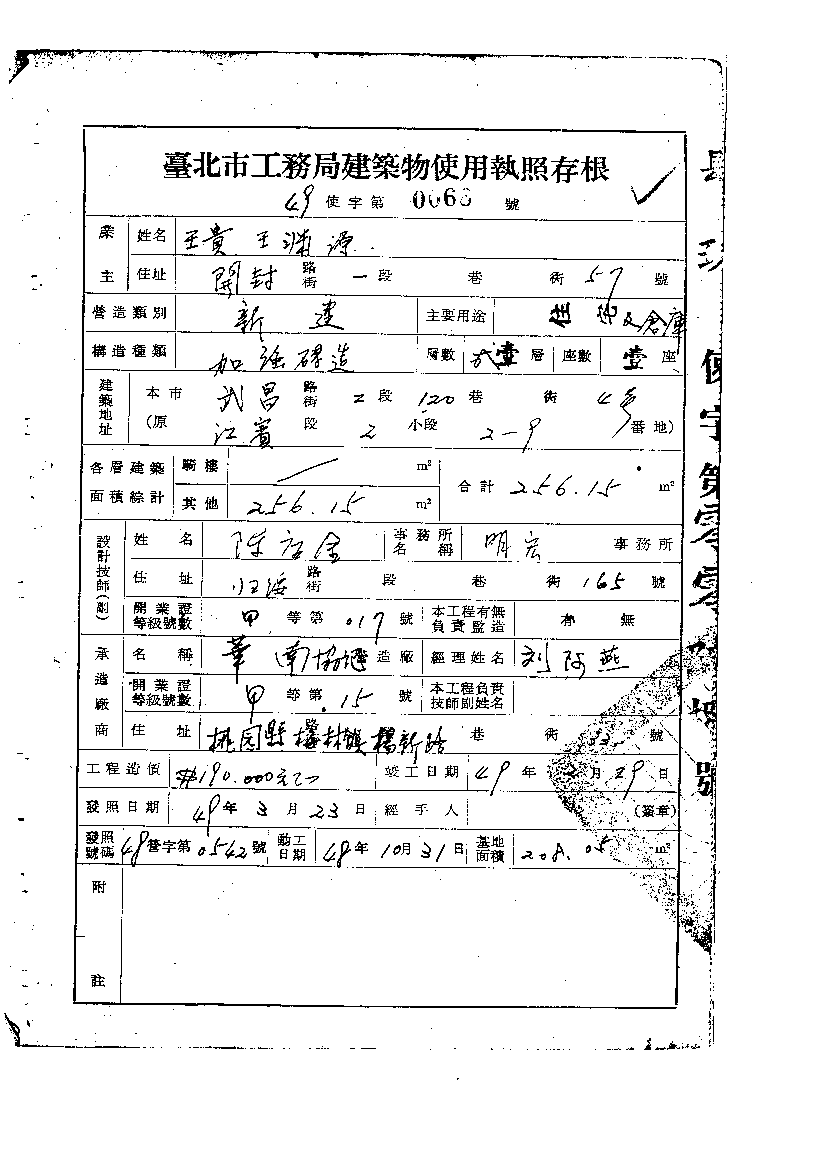 臺北市工務局建築物使用執照存根
49 使字第 0066 號
業主 姓名 王貴 王淵源
住址 開封 路街 一段 巷 街 57 號
營造類別 新建 主要用途 住宅及倉庫
構造種類 加強磚造 層數 貳壹層 座數 壹座
建築地址 本市 武昌 路街 2段 120巷 街 4号
(原 江賓 段 2 小段 2-9 番地)
各層建築面積綜計 騎樓 / m² 合計 256.15 m²
其他 256.15 m²
設計技師(副) 姓名 陳 金 事務所名稱 明宏 事務所
住址 归绥 路街 段 巷 街 165 號
開業證等級號數 甲 等第 017 號 本工程有無負責監造 有 無
承造廠商 名稱 華南協 造廠 經理姓名 刘阿燕
開業證等級號數 甲 等第 15 號 本工程負責技師副姓名
住址 桃园縣 楊新路 巷 街 號
工程造價 #190.000元 竣工日期 49年 2月 29日
發照日期 49年 3月 23日 經手人 (簽章)
發照號碼 48營字第0542號 動工日期 48年 10月 31日 基地面積 208.05 m²
附註
使字第零零
號